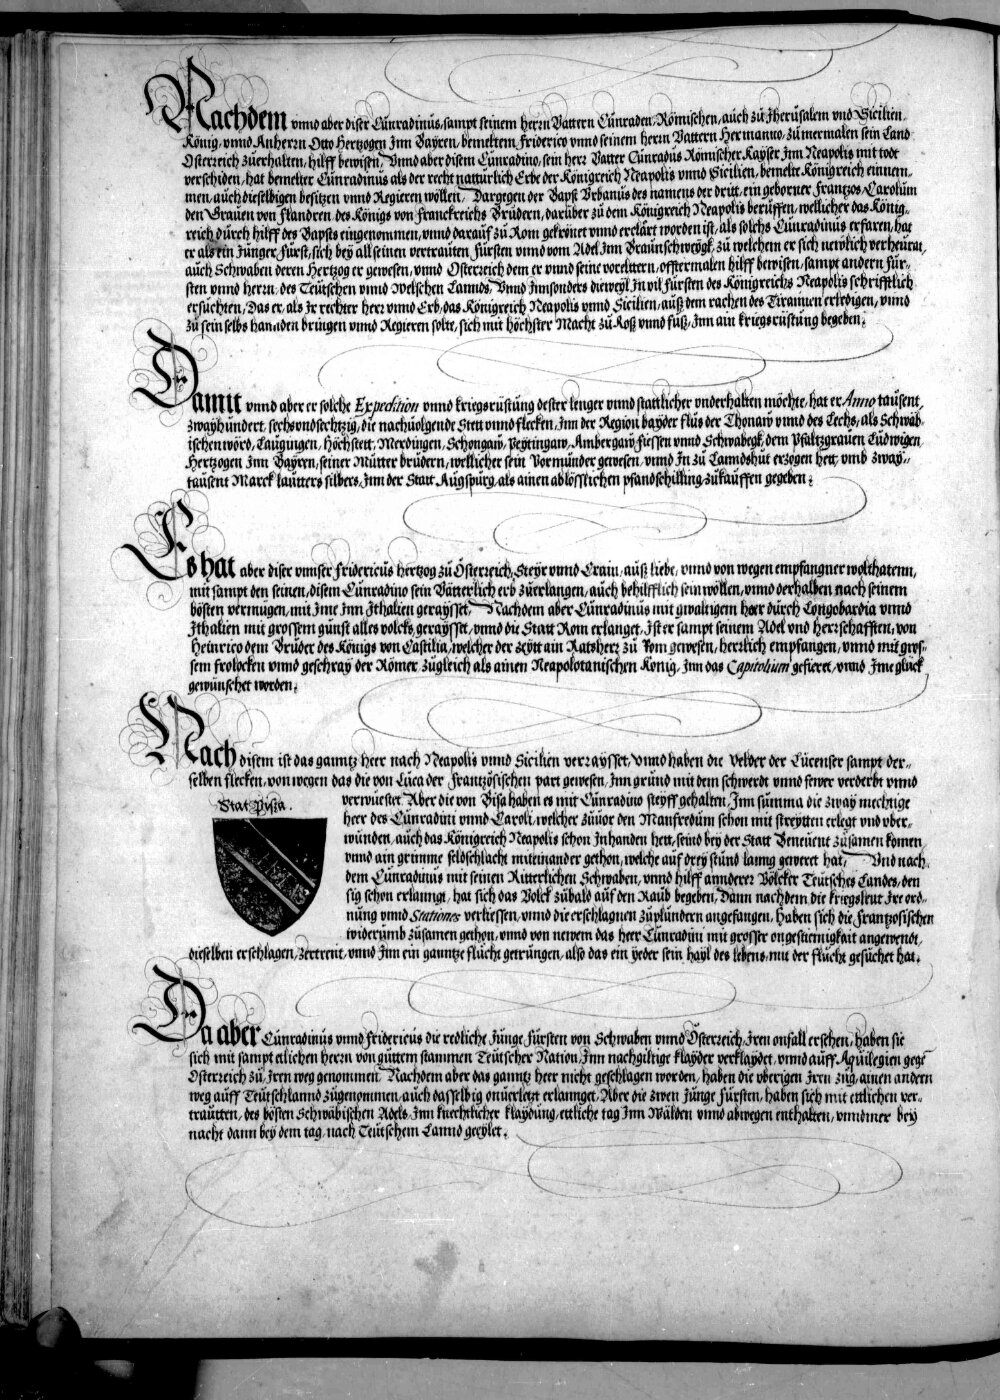 Nachdem vnnd aber diser Cůnradinus, sampt seinem herrn Vattern Cůnraden, Römischen, auch zů Jherusalem vnd Sicilien,
König, vnnd Anherrn Otto Hertzogen Jnn Bayren, bemeltem Friderico vnnd seinem herrn Vattern Hermanno, zů mermalen sein Land
Osterreich zůerhalten, hilff bewisen, Vnnd aber disem Cůnradino, sein herr Vatter Cůnradus Römischer Kayser Jnn Neapolis mit todt
verschiden, hat bemelter Cůnradinus als der recht natturlich Erbe der Königreich Neapolis vnnd Sicilien, bemelte Königreich einnem-
men, auch dieselbigen besitzen vnnd Regieren wöllen, Dargegen der Bapst Vrbanus des namens der drit, ein geborner Frantzos, Carolum
den Grauen von Flandren, des Königs von Franckreichs Brůdern, darüber zů dem Königreich Neapolis berůffen, wellicher das König-
reich durch hilff des Bapsts eingenommen, vnnd darauf zů Rom gekrönet vnnd erclärt worden ist, als solchs Cůnradinus erfaren, hat
er als ein Junger Fürst, sich bey all seinen vertrauten Fürsten vnnd vom Adel, Jnn Braunschweygk, zů welchem er sich newlich verheurat,
auch Schwaben deren Hertzog er gewesen, vnnd Osterreich dem er vnnd seine voreltern, offtermalen hilff bewisen, sampt andern Für-
sten vnnd herrn, des Teutschen vnnd Welschen Lannds, Vnnd Jnnsonders dieweyl Jn vil Fürsten des Königreichs Neapolis schrifftlich
ersuchten, Das er, als Jr rechter herr vnnd Erb, das Königreich Neapolis vnnd Sicilien, auß dem rachen des Tirannen erledigen, vnnd
zů sein selbs hannden bringen vnnd Regieren solte, sich mit höchster Macht zů Roß vnnd fůß, Jnn ain kriegsrüstung begeben.
Damit vnnd aber er solche Expedition vnnd kriegsrüstung dester lenger vnnd stattlicher vnderhalten möchte, hat er Anno tausent,
zwayhundert, sechsvndsechtzig, die nachuolgende Stett vnnd flecken, Jnn der Region bayder flüs der Thonaw vnnd des Lechs, als Schwäb-
ischenwörd, Laugingen, Höchstett, Merdingen, Schongaw, Peytingaw, Ambergaw, Füessen vnnd Schwabegk, dem Pfaltzgrauen Ludwigen,
Hertzogen Jnn Bayren, seiner Můtter brůdern, wellicher sein Vormunder gewesen, vnnd Jn zů Lanndshut erzogen hett, vmb zway-
tausent Marck lautters silbers, Jnn der Statt Augspurg, als ainen ablößlichen pfandschilling, zůkauffen gegeben.
Es hat aber diser vnnser Fridericus hertzog zů Österreich, Steyr vnnd Crain, auß liebe, vnnd von wegen empfangner wolthatenn,
mit sampt den seinen, disem Cůnradino sein Vätterlich erb zůerlangen, auch behilfflich sein wöllen, vnnd derhalben nach seinem
bösten vermügen, mit Jme Jnn Jthalien geraysset. Nachdem aber Cůnradinus mit gwaltigem heer durch Longobardia vnnd
Jthalien mit grossem gunst alles volcks, geraysset, vnnd die Statt Rom erlanget, Jst er sampt seinem Adel vnd herrschafften, von
Heinrico dem Brůder des Königs von Castilia, welcher der zeytt ain Ratsherr zů Rom gewesen, herrlich empfangen, vnnd mit gros-
sem frolocken vnnd geschray der Römer, zůgleich als ainen Neapolotanischen König, Jnn das Capitolium gefieret, vnnd Jme glück
gewünschet worden.
Nach disem ist das ganntz heer nach Neapolis vnnd Sicilien verraysset, vnnd haben die Velder der Lucenser sampt der-
selben flecken, von wegen das die von Luca der Frantzösischen part gewesen, Jnn grund mit dem schwerdt vnnd fewer verderbt vnnd
Stat Pysa.
verwüestet. Aber die von Pisa haben es mit Cůnradino steyff gehalten, Jnn summa die zway mechtige
heer des Cůnradini vnnd Caroli, welcher zůuor den Manfredum schon mit streytten erlegt vnd vber-
wunden, auch das Königreich Neapolis schon Jnhanden hett, seind bey der Statt Beneuent zůsamen komen,
vnnd ain grimme feldschlacht miteinander gethon, welche auf drey stund lanng geweret hat, Vnd nach-
dem Cůnradinus mit seinen Ritterlichen Schwaben, vnnd hilff annderer Völcker Teutsches Landes, den
sig schon erlanngt, hat sich das Volck zůbald auf den Raub begeben, Dann nachdem die kriegsleut Jre ord-
nung vnnd Stationes verliessen, vnnd die erschlagnen zůplundern angefangen, haben sich die Frantzosischen
widerumb zůsamen gethon, vnnd von newem das heer Cůnradini mit grosser ongestiemigkait angewendt,
dieselben erschlagen, zertrent, vnnd Jnn ein ganntze flucht getrungen, also das ein yeder sein hayl des lebens, mit der flucht gesůchet hat.
Da aber Cůnradinus vnnd Fridericus die redliche Junge Fürsten von Schwaben vnnd Österreich, Jren onfall ersehen, haben sie
sich mit sampt etlichen herrn von gůttem stammen Teutscher Nation, Jnn nachgiltige klayder verklaydet, vnnd auff Aquilegien gegē
Osterreich zů, Jren weg genommen, Nachdem aber das ganntz heer nicht geschlagen worden, haben die vberigen Jren zug, ainen andern
weg auff Teutschlannd zůgenommen, auch dasselbig onuerletzt erlannget, Aber die zwen Junge Fürsten, haben sich mit ettlichen ver-
trautten, des bösten Schwäbischen Adels, Jnn knechtlicher klaydung, ettliche tag Jnn Wälden vnnd abwegen enthalten, vnndmer bey
nacht dann bey dem tag, nach Teutschem Lannd geeylet.